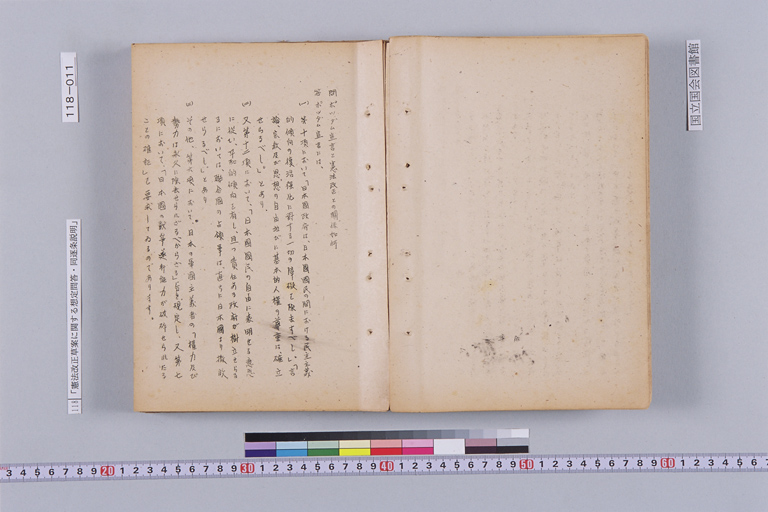 国立国会図書館
問 ポツダム宣言と憲法改正との関係如何
答 ポツダム宣言には、
(一) 第十項において、「日本國政府は、日本國國民の間における民主主義
的傾向の復活強化に対する一切の障礙を除去すべし。」「言
論、宗教及び思想の自由並びに基本的人権の尊重は確立
せらるべし。」とあり、
(二) 又第十二項において、「日本國國民の自由に表明せる意思
に従い、平和的傾向を有し、且つ責任ある政府が樹立せらる
るにおいては聯合國の占領軍は、直ちに日本國より撤收
せらるべし。」とあり
(三) その他、第六項において、日本の軍國主義者の「權力及び
勢力は永久に除去せられざるべからざる」旨を規定し、又第七
項において、「日本國の戰爭遂行能力が破砕せられたる
ことの確証」を要求してゐるのであります。
118-011
118「憲法改正草案に関する想定問答・同逐条説明」
3 4 5 6 7 8 9 20 1 2 3 4 5 6 7 8 9 30 1 2 3 4 5 6 7 8 9 40 1 2 3 4 5 6 7 8 9 50 1 2 3 4 5 6 7 8 9 60 1 2 3 4 5 6 7